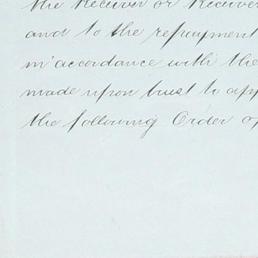 the Receiver or Receiver
and to the repayment
in accordance with the
made upon trust to app
the following Order of